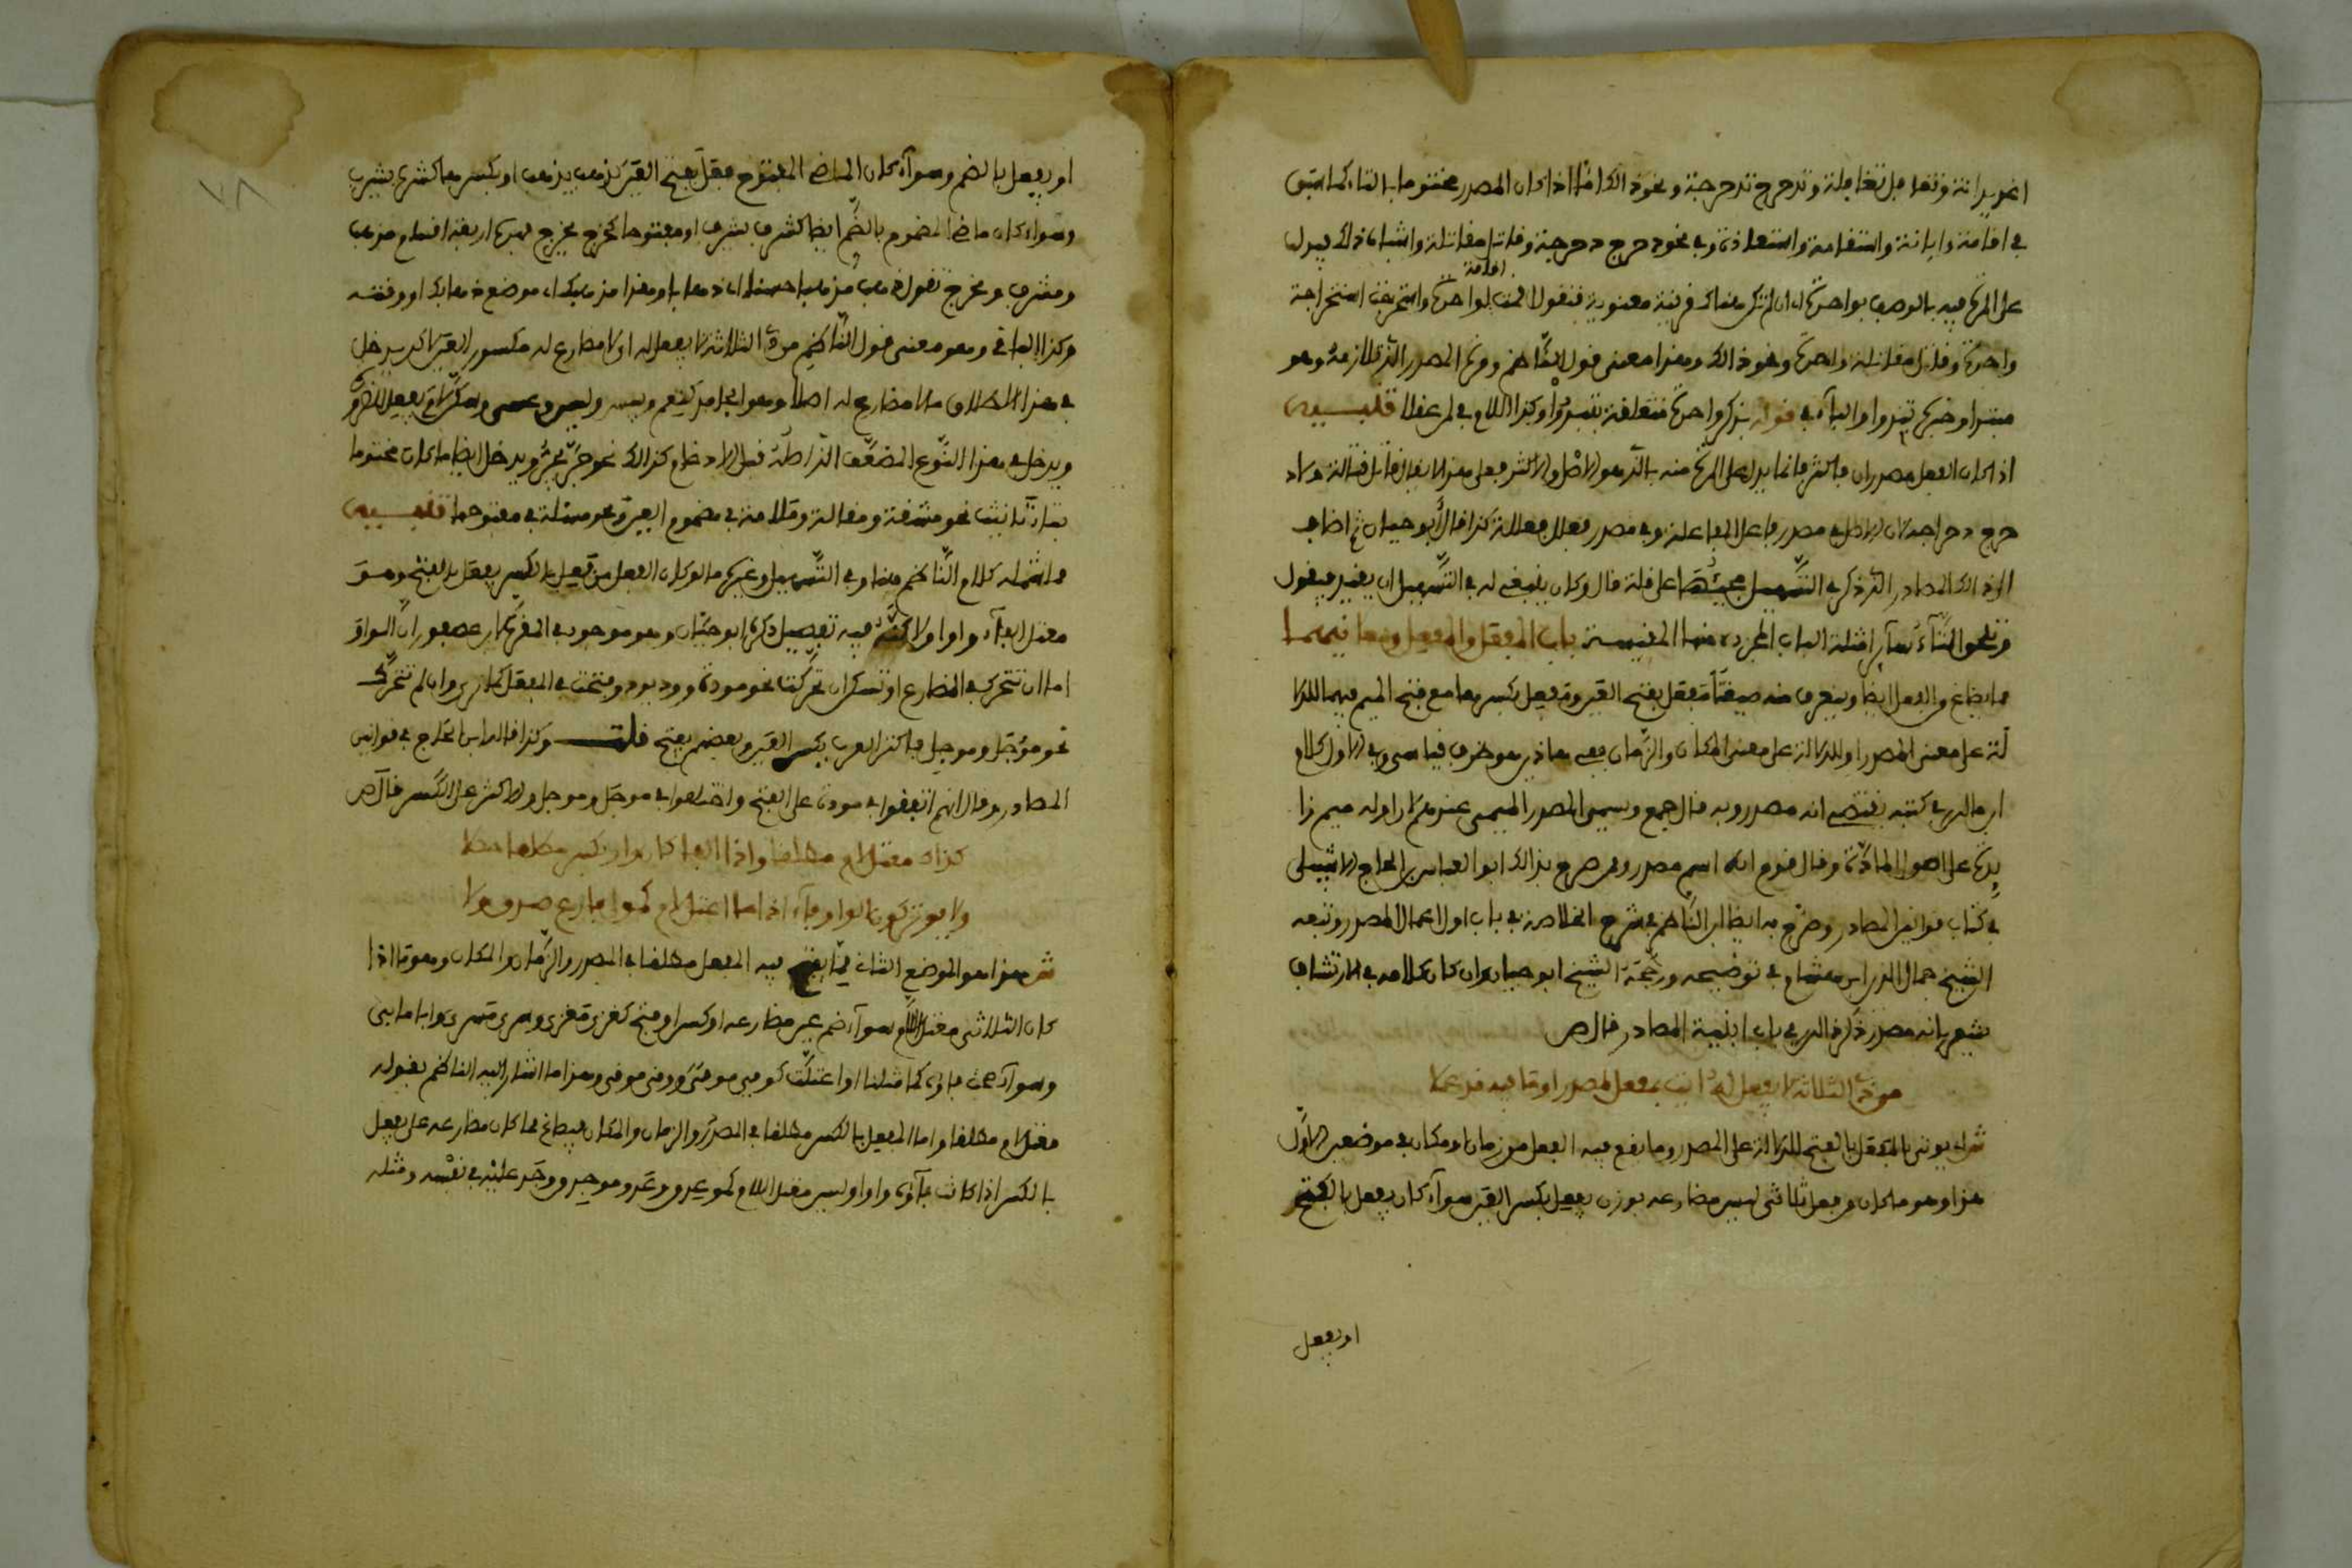 في إقامة وإبانة واستقامة واستعاذة وفي نحو دحرج دحرجة وقاتل مقاتلة وأشباه ذلك فيدل
إقامة
على المرة فيه بالوصف بواحدة إن لم تكن هناك قرينة معنوية فتقول أقمت واحدة واستخرجت استخراجة
واحدة وقاتل مقاتلة واحدة ونحو ذلك وهذا معنى قول الناظم ومرة المصدر الذي تلازمه وهو
مبتدأ وخبره تبدو والباء في قوله بذكر واحدة متعلقة بتبدو وكذا اللام في لمن عقلا تنبيه
إذا كان للفعل مصدران فأكثر فإنما يدل على المرة منه بالذي هو الأصل والأكثر فعلى هذا لا يقال قاتل قتالة ولا د
حرج دحراجة لأن الأصل في مصدر فاعل المفاعلة وفي مصدر فعلل فعللة كذا قال أبو حيان ثم أضاف
إلى ذلك المصادر التي ذكر في التسهيل مجيئها على قلة قال وكان ينبغي له في التسهيل أن يقيد فيقول
وتلحق التاء سائر أمثلة الباب المجردة منها المقيسة باب المفعل والمفعل ومعانيهما
مما يصاغ من الفعل أيضا ويتعرف منه صيغتا مفعل بفتح العين ومفعل بكسرها مع فتح الميم فيهما للدلا
لة على معنى المصدر أو للدلالة على معنى المكان والزمان
ابن مالك في كتبه يقتضي أنه مصدر وبه قال جمع ويسمى المصدر الميمي عندهم لأن أوله ميم زا
يدة على أصول المادة وقال قوم إنه اسم مصدر وممن صرح بذلك أبو العباس بن الحاج الإشبيلي
في كتاب قوانين المصادر وصرح به أيضا ابن الناظم في شرح الخلاصة في باب أول إعمال المصدر وتبعه
الشيخ جمال الدين بن هشام في توضيحه ورجحه الشيخ أبو حيان وإن كان كلامه في الارتشاف
يشعر بأنه مصدر ذكر ذلك في باب أبنية المصادر قال ص
من ذي الثلاثة لا يفعل له ائت بمفعل لمصدر أو ما فيه قد عملا
ش أي يؤتى بالمفعل بالفتح للدلالة على المصدر وما يقع فيه الفعل من زمان أو مكان في موضعين الأول
هذا وهو ما كان من فعل ثلاثي ليس مضارعه بوزن يفعل بكسر العين سواء كان يفعل بالفتح
أو يفعل
أو يفعل بالضم وسواء كان الماضي المفتوح فعل بفتح العين كذهب يذهب أو بكسرها كشرب يشرب
وسواء كان ماضي المضموم بالضم أيضا كشرف يشرف أو مفتوحا كخرج يخرج فهذه أربعة أقسام مذهب
ومشرب ومخرج تقول ذهب مذهبا حسنا أي ذهابا وهذا مذهبك أي موضع ذهابك أو وقته
وكذا الباقي وهو معنى قول الناظم من ذي الثلاثة لا يفعل له أي لا مضارع له مكسور العين لكن يدخل
في هذا الإطلاق ما لا مضارع له أصلا وهو الجامد كنعم وبيس وليس وعسى
ويدخل في هذا النوع المضعف الذي أصله قبل الإدغام كذلك نحو جر يجر ويدخل أيضا ما كان مختوما
بتاء تأنيث نحو مشقة ومقالة وملامة في مضموم العين ونحو مسئلة في مفتوحها تنبيه
ما شمله كلام الناظم هنا وفي التسهيل وغيره ما لو كان الفعل من فعل بالكسر يفعل بالفتح وهو
معتل الفاء واوا ولكن فيه تفصيل ذكره أبو حيان وهو موجود في المقرب لابن عصفور أن الواو
إما أن تتحرك في المضارع أو تسكن إن تحركت نحو مودة وود يود فتحت في المفعل كما ترى وإن لم تتحرك
نحو موجل وموجل فأكثر العرب بكسر العين وبعضهم بفتح قلت وكذا قال ابن الحاج في قوانين
المصادر وقال إنهم اتفقوا في مودة على الفتح واختلفوا في موجل وموجل والأكثر على الكسر قال ص
كذاك معتل لام مطلقا وإذا الفا كان واوا بكسر مطلقا حصلا
ولا يؤثر كون الواو فاء إذا ما اعتل لام كمولى فارع صدق ولا
ش هذا هو الموضع الثاني مما يفتح فيه المفعل مطلقا في المصدر والزمان والمكان وهو ما إذا
كان الثلاثي معتل اللام سواء ضم عين مضارعه أو كسر أو فتح كغزى مغزى وسرى مسرى وأبا مابى
وسواء صحت فاؤه كما مثلنا أو اعتلت كوفى موفى ووقى موقى وهذا ما أشار إليه الناظم بقوله
معتل لام مطلقا وأما المفعل بالكسر مطلقا في المصدر والزمان والمكان فيصاغ مما كان مضارعه على يفعل
بالكسر إذا كانت فاؤه واوا وليس معتل اللام كموعد ووعد وموجد ووجد عليه في نفسه ومثله